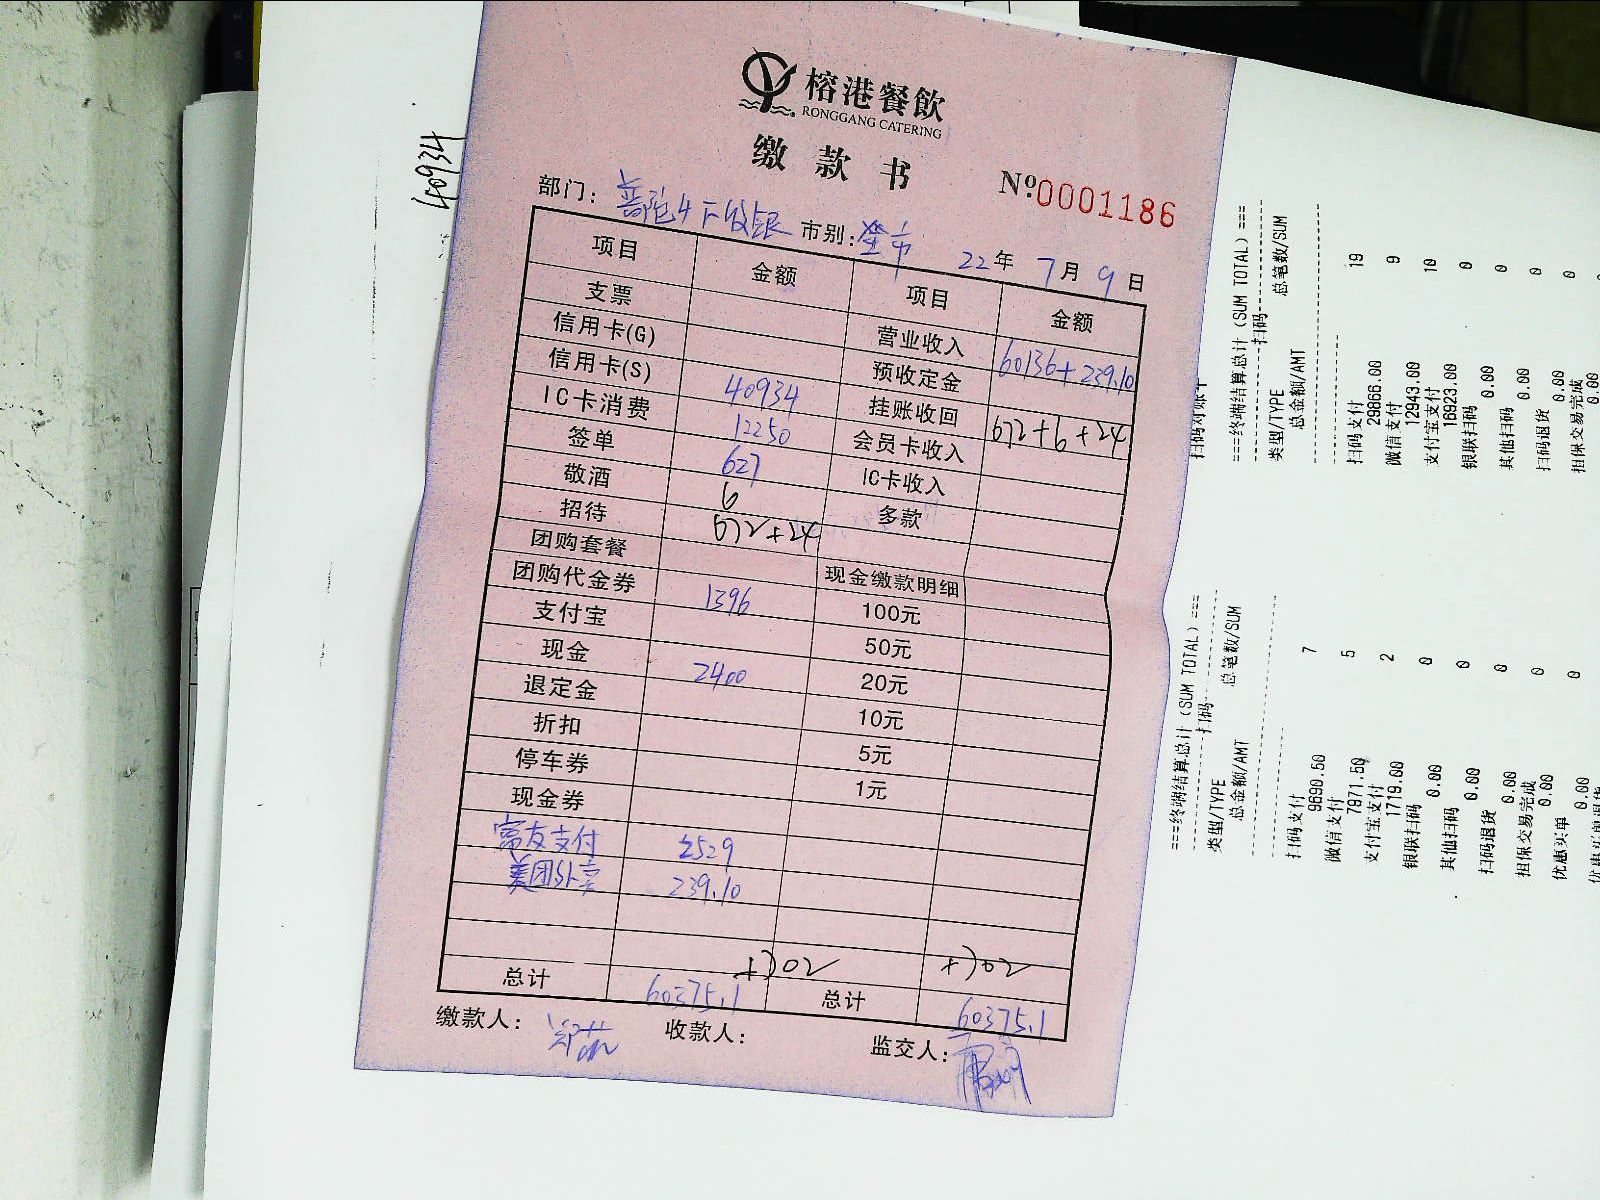 榕港餐飲
RONGGANG CATERING
缴款书
№0001186
部门: 普陀4下收银 市别: 堂市 22年7月9日
项目 金额 项目 金额
支票 营业收入 60136+239.10
信用卡(G) 预收定金
信用卡(S) 40934 挂账收回 672+6+24
IC卡消费 12250 会员卡收入
签单 627 IC卡收入
敬酒 6 多款
招待 672+24
团购套餐 现金缴款明细
团购代金券 1396 100元
支付宝 50元
现金 2400 20元
退定金 10元
折扣 5元
停车券 1元
现金券
支付 2529
美团外卖 239.10
+702 +702
总计 60375.1 总计 60375.1
缴款人: 收款人: 监交人:
40934
扫码对账
===终端结算总计(SUM TOTAL)===
扫码
类型/TYPE 总笔数/SUM
总金额/AMT
扫码支付 19
29866.00
微信支付 9
12943.00
支付宝支付 10
16923.00
银联扫码 0
0.00
其他扫码 0
0.00
扫码退货 0
0.00
担保交易完成 0
0.00
===终端结算总计(SUM TOTAL)===
扫码
类型/TYPE 总笔数/SUM
总金额/AMT
扫码支付 7
9690.50
微信支付 5
7971.50
支付宝支付 2
1719.00
银联扫码 0
0.00
其他扫码 0
0.00
扫码退货 0
0.00
担保交易完成 0
0.00
优惠买单 0
0.00